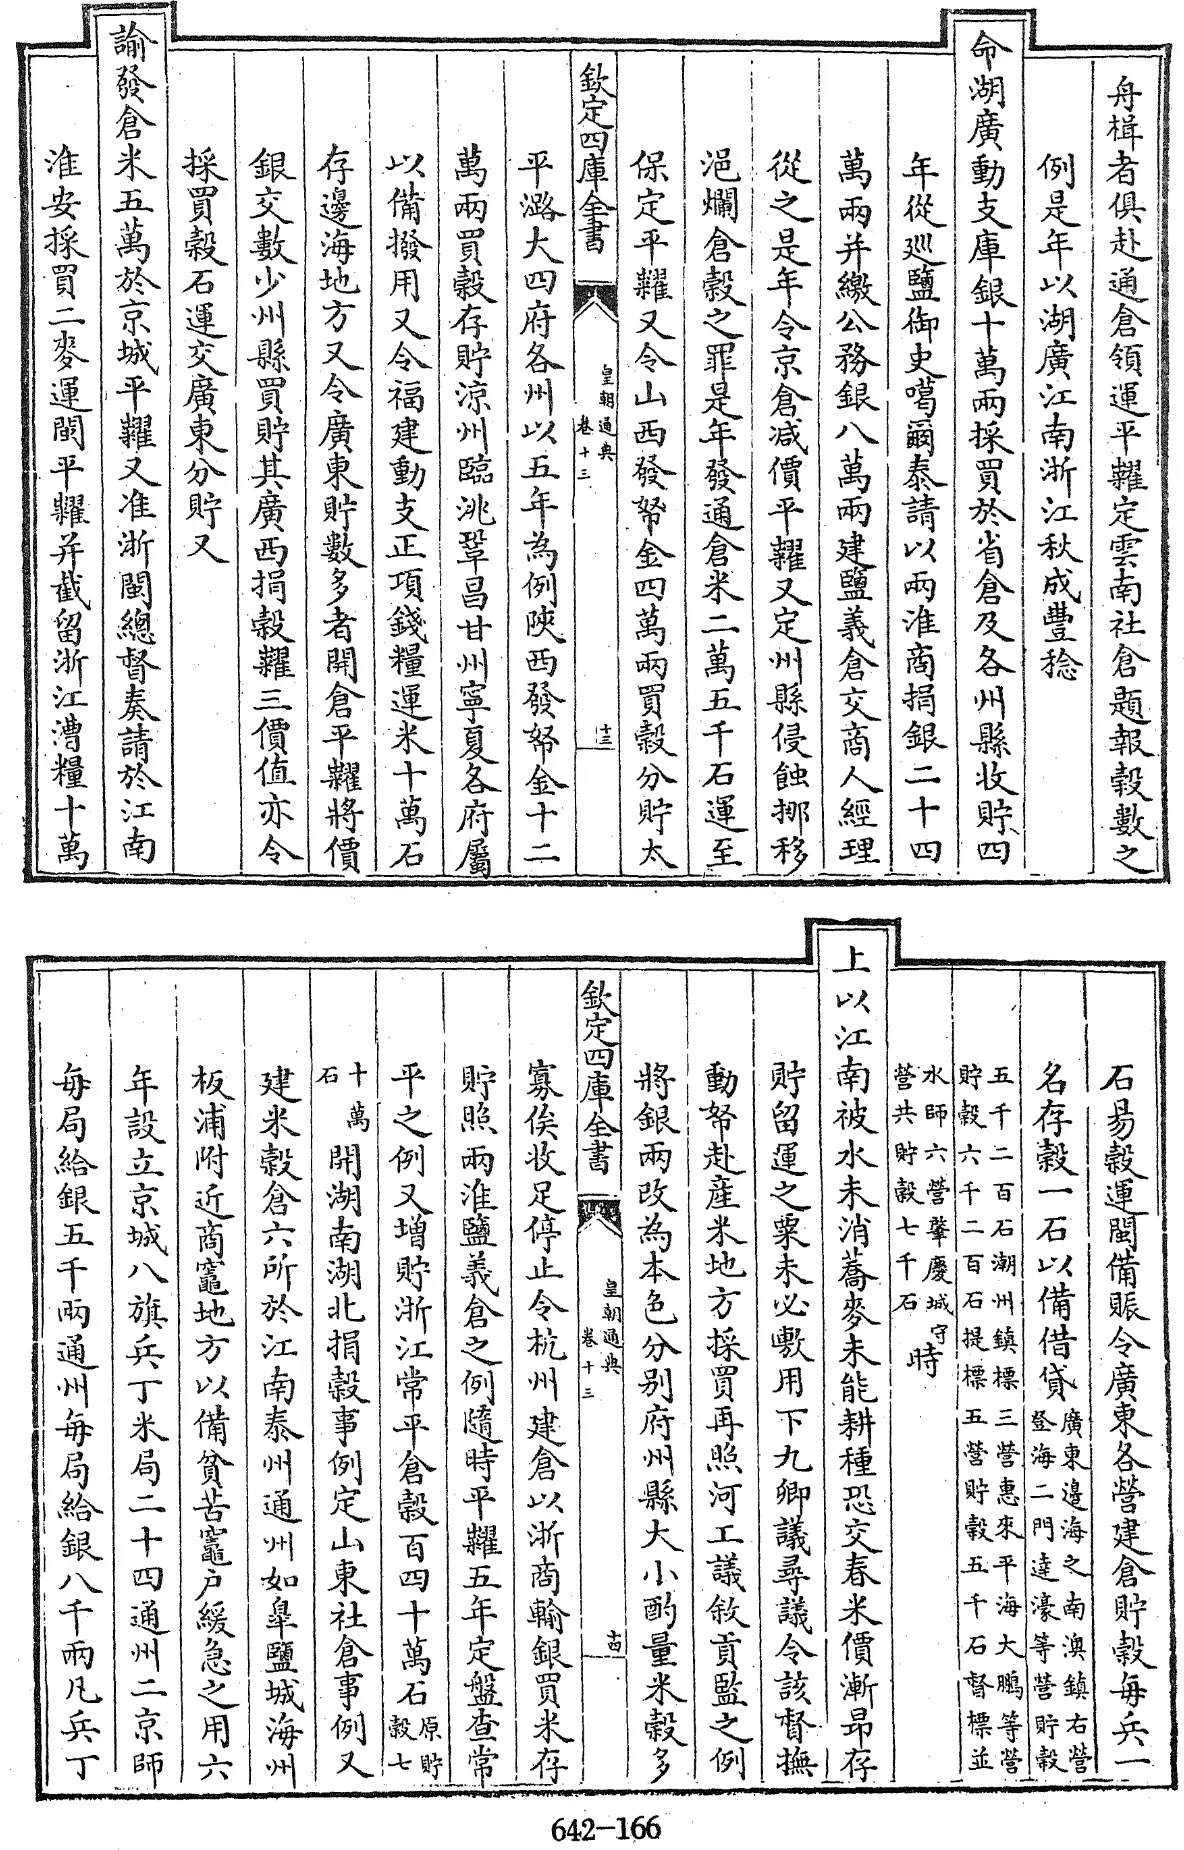 舟楫者俱赴通倉領運平糶定雲南社倉題報穀數之
例是年以湖廣江南浙江秋成豐稔
命湖廣動支庫銀十萬兩採買於省倉及各州縣收貯四
年從巡鹽御史噶爾泰請以兩淮商捐銀二十四
萬兩并繳公務銀八萬兩建鹽義倉交商人經理
從之是年令京倉減價平糶又定州縣侵蝕挪移
浥爛倉穀之罪是年發通倉米二萬五千石運至
保定平糶又令山西發帑金四萬兩買穀分貯太
欽定四庫全書
皇朝通典
卷十三
十三
平潞大四府各州以五年為例陝西發帑金十二
萬兩買穀存貯涼州臨洮鞏昌甘州寧夏各府屬
以備撥用又令福建動支正項錢糧運米十萬石
存邊海地方又令廣東貯數多者開倉平糶將價
銀交數少州縣買貯其廣西捐穀糶三價值亦令
採買穀石運交廣東分貯又
諭發倉米五萬於京城平糶又准浙閩總督奏請於江南
淮安採買二麥運閩平糶并截留浙江漕糧十萬
石易穀運閩備賑令廣東各營建倉貯穀每兵一
名存穀一石以備借貸廣東邊海之南澳鎮右營
登海二門達濠等營貯穀
五千二百石潮州鎮標三營惠來平海大鵬等營
貯穀六千二百石提標五營貯穀五千石督標並
水師六營肇慶城守
營共貯穀七千石
時
上以江南被水未消蕎麥未能耕種恐交春米價漸昂存
貯留運之粟未必敷用下九卿議尋議令該督撫
動帑赴產米地方採買再照河工議敘貢監之例
將銀兩改為本色分別府州縣大小酌量米穀多
欽定四庫全書
皇朝通典
卷十三
十四
寡俟收足停止令杭州建倉以浙商輸銀買米存
貯照兩淮鹽義倉之例隨時平糶五年定盤查常
平之例又增貯浙江常平倉穀百四十萬石原貯
穀七
十萬
石
開湖南湖北捐穀事例定山東社倉事例又
建米穀倉六所於江南泰州通州如皋鹽城海州
板浦附近商竈地方以備貧苦竈戶緩急之用六
年設立京城八旗兵丁米局二十四通州二京師
每局給銀五千兩通州每局給銀八千兩凡兵丁
642-166